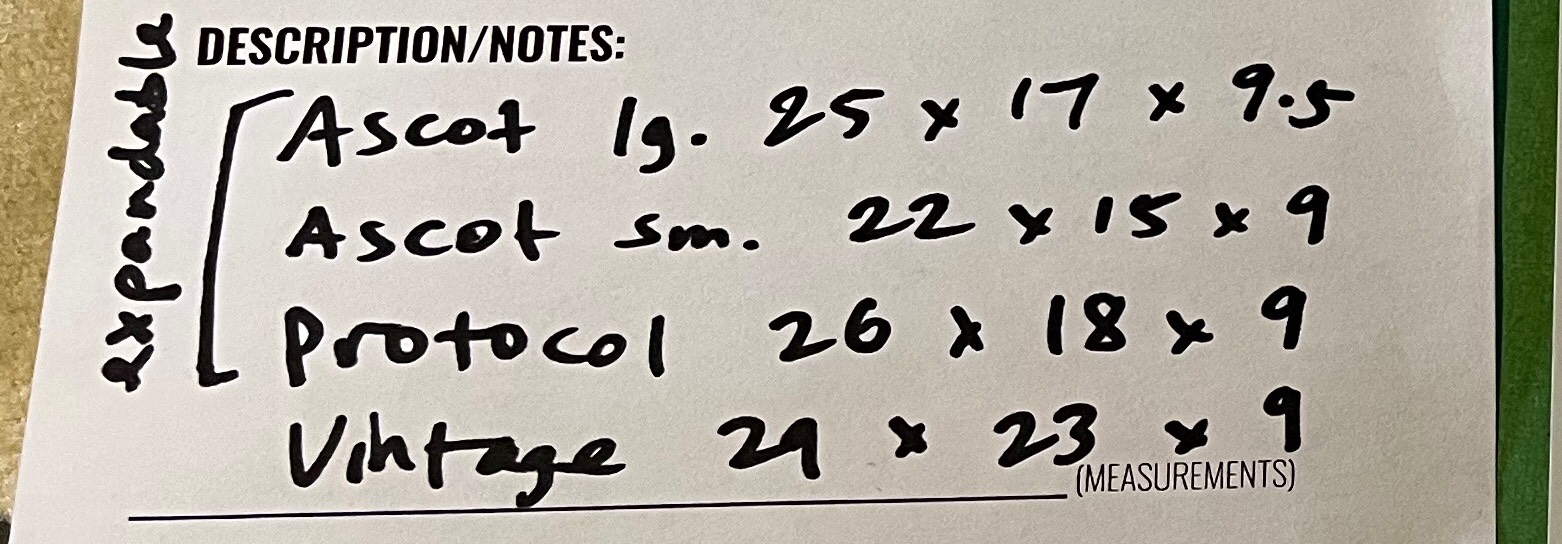 expandable
DESCRIPTION/NOTES:
Ascot lg. 25 x 17 x 9.5
Ascot sm. 22 x 15 x 9
Protocol 26 x 18 x 9
Vintage 29 x 23 x 9
(MEASUREMENTS)